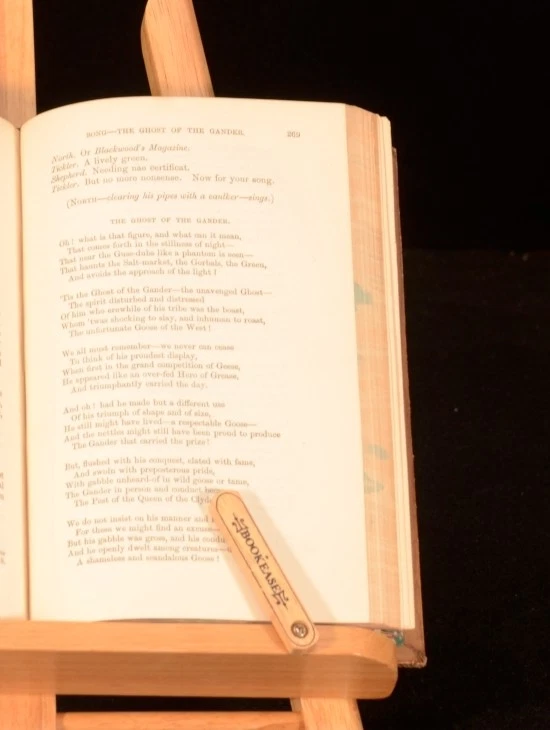 SONG—THE GHOST OF THE GANDER. 269
North. Or Blackwood's Magazine.
Tickler. A lively green.
Shepherd. Needing nae certificat.
Tickler. But no more nonsense. Now for your song.
(NORTH—clearing his pipes with a caulker—sings.)
THE GHOST OF THE GANDER.
Oh! what is that figure, and what can it mean,
That comes forth in the stillness of night—
That near the Guse-dubs like a phantom is seen—
That haunts the Salt-market, the Gorbals, the Green,
And avoids the approach of the light!
'Tis the Ghost of the Gander—the unavenged Ghost—
The spirit disturbed and distressed
Of him who erewhile of his tribe was the boast,
Whom 'twas shocking to slay, and inhuman to roast,
The unfortunate Goose of the West!
We all must remember—we never can cease
To think of his proudest display,
When first in the grand competition of Geese,
He appeared like an over-fed Hero of Greese,
And triumphantly carried the day.
And oh! had he made but a different use
Of his triumph of shape and of size,
He still might have lived—a respectable Goose—
And the nettles might still have been proud to produce
The Gander that carried the prize!
But, flushed with his conquest, elated with fame,
And swoln with preposterous pride,
With gabble unheard-of in wild goose or tame,
The Gander in person and conduct
The Pest of the Queen of the
We do not insist on his manner and
For these we might find an excuse—
But his gabble was gross, and his
And he openly dwelt among creatures—
A shameless and scandalous Goose!
BOOKEASE